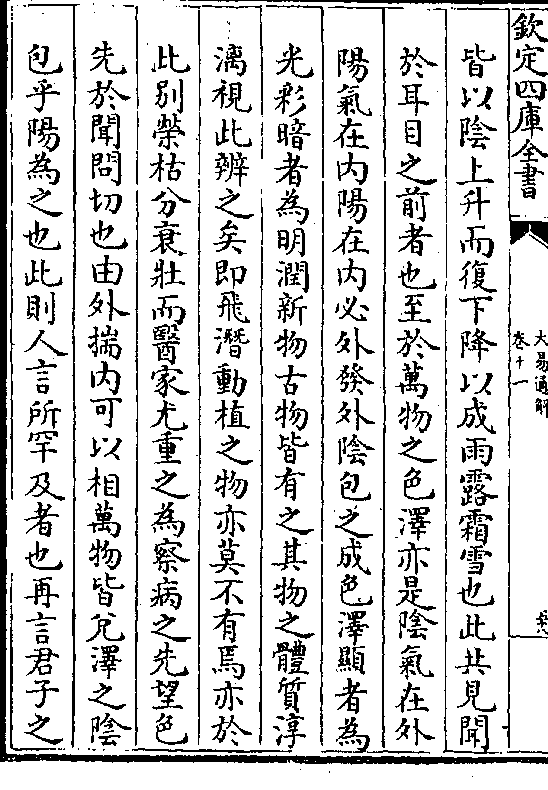 欽定四庫全書
大易通解
卷十一
皆以陰上升而復下降以成雨露霜雪也此共見聞
於耳目之前者也至於萬物之色澤亦是陰氣在外
陽氣在内陽在内必外發外陰包之成色澤顯者為
光彩暗者為明潤新物古物皆有之其物之體質淳
漓視此辨之矣即飛潛動植之物亦莫不有焉亦於
此别榮枯分衰壯而醫家尤重之為察病之先望色
先於聞問切也由外揣内可以相萬物皆兌澤之陰
包乎陽為之也此則人言所罕及者也再言君子之